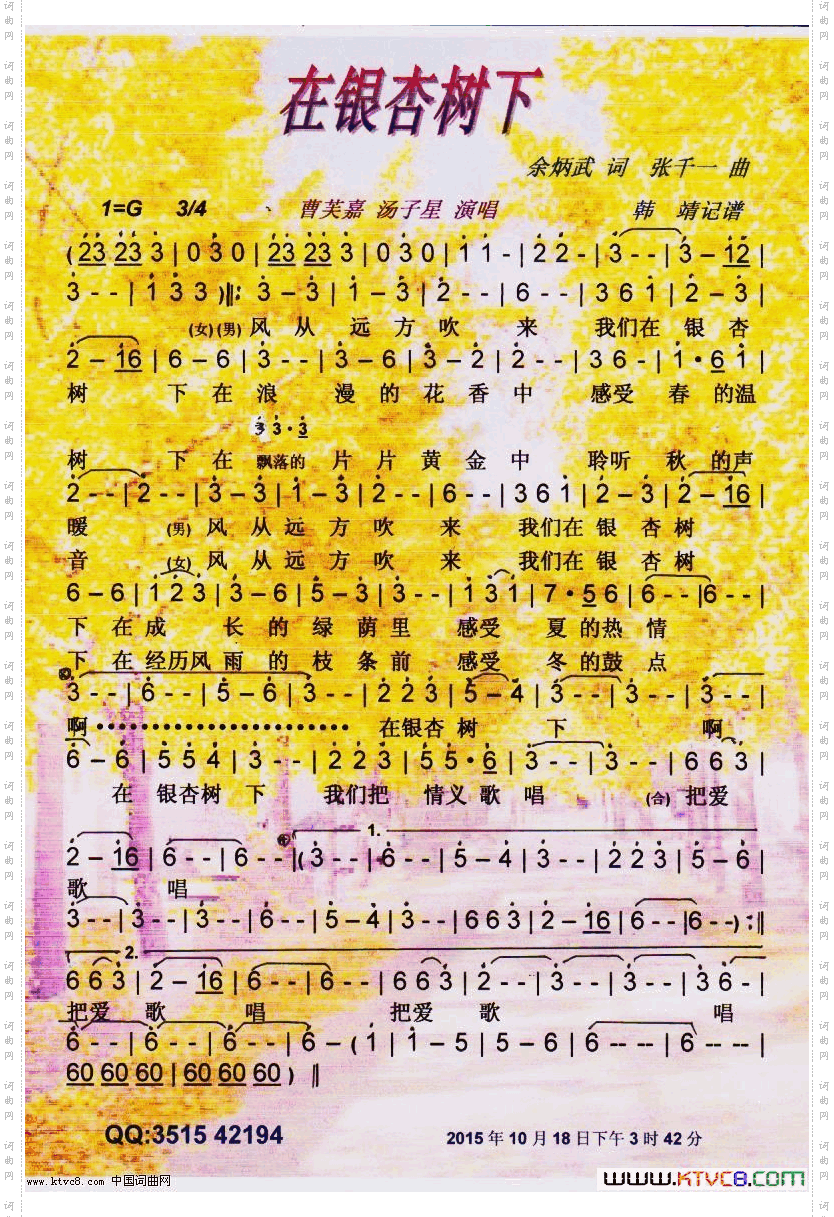 在银杏树下
余炳武 词 张千一 曲
1=G 3/4 曹芙嘉 汤子星 演唱 韩 靖记谱
( 23 23 3 | 0 3 0 | 23 23 3 | 0 3 0 | 1 1 - | 2 2 - | 3 - - | 3 - 12 |
3 - - | 1 3 3 ) ‖: 3 - 3 | 1 - 3 | 2 - - | 6 - - | 3 6 1 | 2 - 3 |
(女) (男) 风 从 远 方 吹 来 我们在 银 杏
2 - 16 | 6 - 6 | 3 - - | 3 - 6 | 3 - 2 | 2 - - | 3 6 - | 1 · 6 1 |
树 下 在 浪 漫 的 花 香 中 感受 春 的温
3 3 · 3
树 下 在 飘落的 片 片 黄 金 中 聆听 秋 的声
2 - - | 2 - - | 3 - 3 | 1 - 3 | 2 - - | 6 - - | 3 6 1 | 2 - 3 | 2 - 16 |
暖 (男) 风 从 远 方 吹 来 我们在 银 杏 树
音 (女) 风 从 远 方 吹 来 我们在 银 杏 树
6 - 6 | 1 2 3 | 3 - 6 | 5 - 3 | 3 - - | 1 3 1 | 7 · 5 6 | 6 - - | 6 - - |
下 在 成 长 的 绿 荫 里 感受 夏 的 热 情
下 在 经历风 雨 的 枝 条 前 感受 冬 的 鼓 点
3 - - | 6 - - | 5 - 6 | 3 - - | 2 2 3 | 5 - 4 | 3 - - | 3 - - | 3 - - |
啊 ····················· 在银杏 树 下 啊
6 - 6 | 5 5 4 | 3 - - | 2 2 3 | 5 5 · 6 | 3 - - | 3 - - | 6 6 3 |
在 银杏树 下 我们把 情义 歌 唱 (合) 把爱
1.
2 - 16 | 6 - - | 6 - - |( 3 - - | 6 - - | 5 - 4 | 3 - - | 2 2 3 | 5 - 6 |
歌 唱
3 - - | 3 - - | 3 - - | 6 - - | 5 - 4 | 3 - - | 6 6 3 | 2 - 16 | 6 - - | 6 - - ) :‖
2.
6 6 3 | 2 - 16 | 6 - - | 6 - - | 6 6 3 | 2 - - | 3 - - | 3 - - | 3 6 - |
把爱 歌 唱 把爱 歌 唱
6 - - | 6 - - | 6 - - | 6 - ( 1 | 1 - 5 | 5 - 6 | 6 -- -- | 6 -- -- |
60 60 60 | 60 60 60 ) ‖
QQ:3515 42194
2015 年 10 月 18 日下午 3 时 42 分
www.ktvc8.com 中国词曲网
www.KTVC8.com